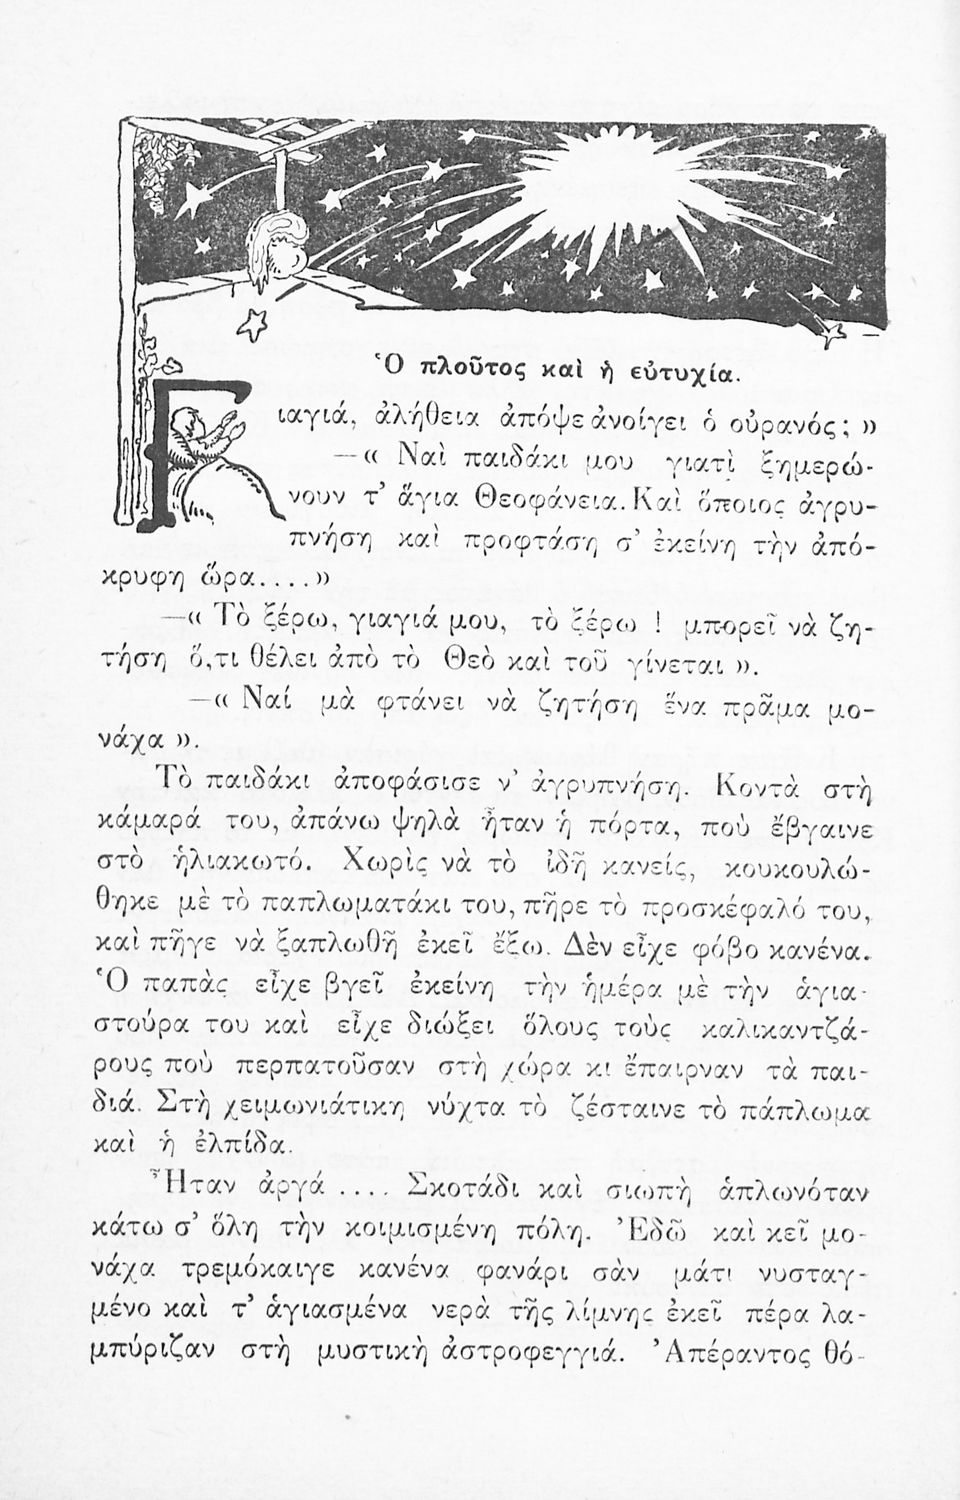 Ὁ πλοῦτος καὶ ἡ εὐτυχία.
Γιαγιά, ἀλήθεια ἀπόψε ἀνοίγει ὁ οὐρανός; »
—« Ναὶ παιδάκι μου γιατὶ ξημερώ-
νουν τ’ ἅγια Θεοφάνεια. Καὶ ὅποιος ἀγρυ-
πνήση καὶ προφτάση σ’ ἐκείνη τὴν ἀπό-
κρυφη ὥρα....»
—« Τὸ ξέρω, γιαγιά μου, τὸ ξέρω ! μπορεῖ νὰ ζη-
τήση ὅ,τι θέλει ἀπὸ τὸ Θεὸ καὶ τοῦ γίνεται ».
—« Ναί μὰ φτάνει νὰ ζητήση ἕνα πρᾶμα μο-
νάχα ».
Τὸ παιδάκι ἀποφάσισε ν’ ἀγρυπνήση. Κοντὰ στὴ
κάμαρά του, ἀπάνω ψηλὰ ἦταν ἡ πόρτα, ποὺ ἔβγαινε
στὸ ἡλιακωτό. Χωρὶς νὰ τὸ ἰδῆ κανείς, κουκουλώ-
θηκε μὲ τὸ παπλωματάκι του, πῆρε τὸ προσκέφαλό του,
καὶ πῆγε νὰ ξαπλωθῆ ἐκεῖ ἔξω. Δὲν εἶχε φόβο κανένα.
Ὁ παπὰς εἶχε βγεῖ ἐκείνη τὴν ἡμέρα μὲ τὴν ἁγια-
στούρα του καὶ εἶχε διώξει ὅλους τοὺς καλικαντζά-
ρους ποὺ περπατοῦσαν στὴ χώρα κι ἔπαιρναν τὰ παι-
διά. Στὴ χειμωνιάτικη νύχτα τὸ ζέσταινε τὸ πάπλωμα
καὶ ἡ ἐλπίδα.
Ἦταν ἀργά .... Σκοτάδι καὶ σιωπὴ ἁπλωνόταν
κάτω σ’ ὅλη τὴν κοιμισμένη πόλη. Ἐδῶ καὶ κεῖ μο-
νάχα τρεμόκαιγε κανένα φανάρι σὰν μάτι νυσταγ-
μένο καὶ τ’ ἁγιασμένα νερὰ τῆς λίμνης ἐκεῖ πέρα λα-
μπύριζαν στὴ μυστικὴ ἀστροφεγγιά. Ἀπέραντος θό-